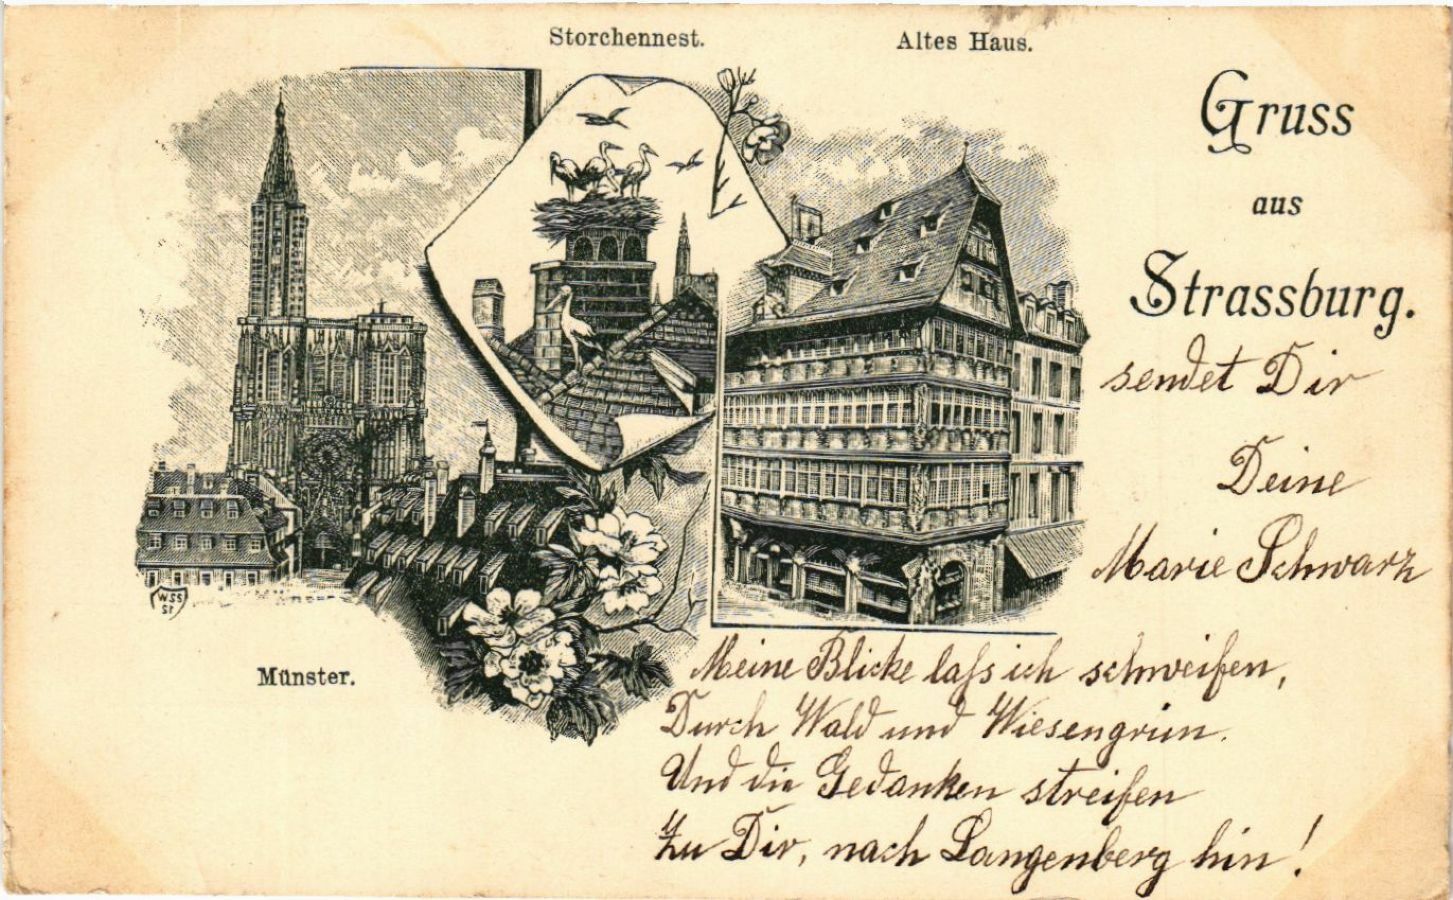 Storchennest.
Altes Haus.
Gruss
aus
Strassburg.
sendet Dir
Deine
Marie Schwarz
WSS
St
Münster.
Meine Blicke lass ich schweifen,
Durch Wald und Wiesengrün.
Und die Gedanken streifen
Zu Dir, nach Langenberg hin!